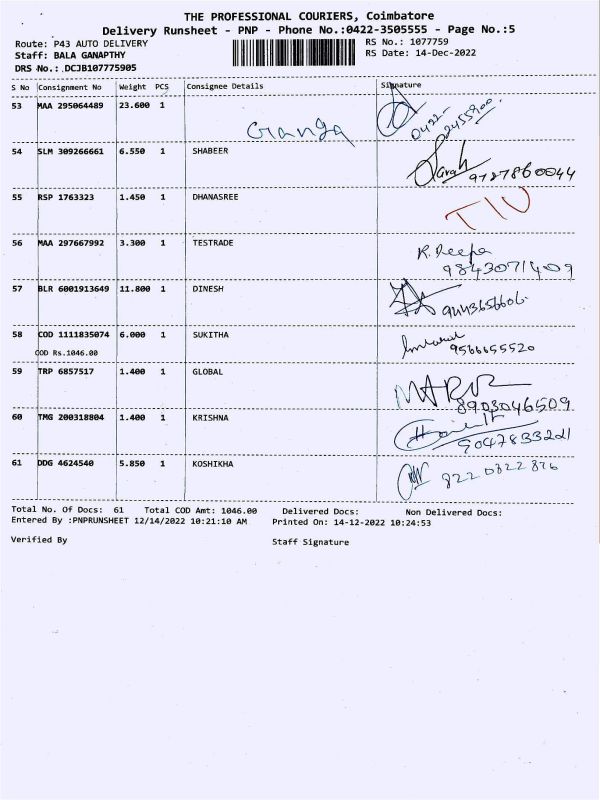 THE PROFESSIONAL COURIERS, Coimbatore
Delivery Runsheet - PNP - Phone No.:0422-3505555 - Page No.:5
Route: P43 AUTO DELIVERY RS No.: 1077759
Staff: BALA GANAPTHY RS Date: 14-Dec-2022
DRS No.: .DCJB107775905
S No Consignment No Weight PCS Consignee Details Signature
53 MAA 295064489 23.600 1
Granga 0422-
2455900
54 SLM 309266661 6.550 1 SHABEER
Sarah 9787860044
55 RSP 1763323 1.450 1 DHANASREE
56 MAA 297667992 3.300 1 TESTRADE
R. Deepa
9843071409
57 BLR 6001913649 11.800 1 DINESH
9443656606
58 COD 1111835074 6.000 1 SUKITHA
9566655520
COD Rs.1046.00
59 TRP 6857517 1.400 1 GLOBAL
8903046509
60 TMG 200318804 1.400 1 KRISHNA
9047833221
61 DDG 4624540 5.850 1 KOSHIKHA
822 0822 876
Total No. Of Docs: 61 Total COD Amt: 1046.00 Delivered Docs: Non Delivered Docs:
Entered By :PNPRUNSHEET 12/14/2022 10:21:10 AM Printed On: 14-12-2022 10:24:53
Verified By Staff Signature